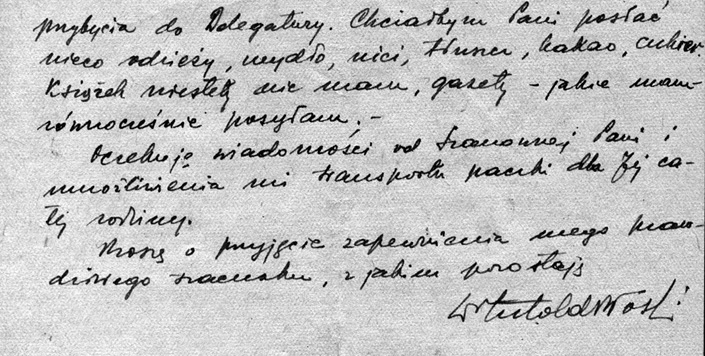 przybycia do Delegatury. Chciałbym Pani posłać
nieco odzieży, mydło, nici, tłuszcz, kakao, cukier.
Książek niestety nie mam, gazety – jakie mam –
równocześnie posyłam. –
Oczekuję wiadomości od Szanownej Pani i
umożliwienia mi transportu paczki dla Jej ca-
łej rodziny.
Proszę o przyjęcie zapewnienia mego praw-
dziwego szacunku, z jakim pozostaję
Witold